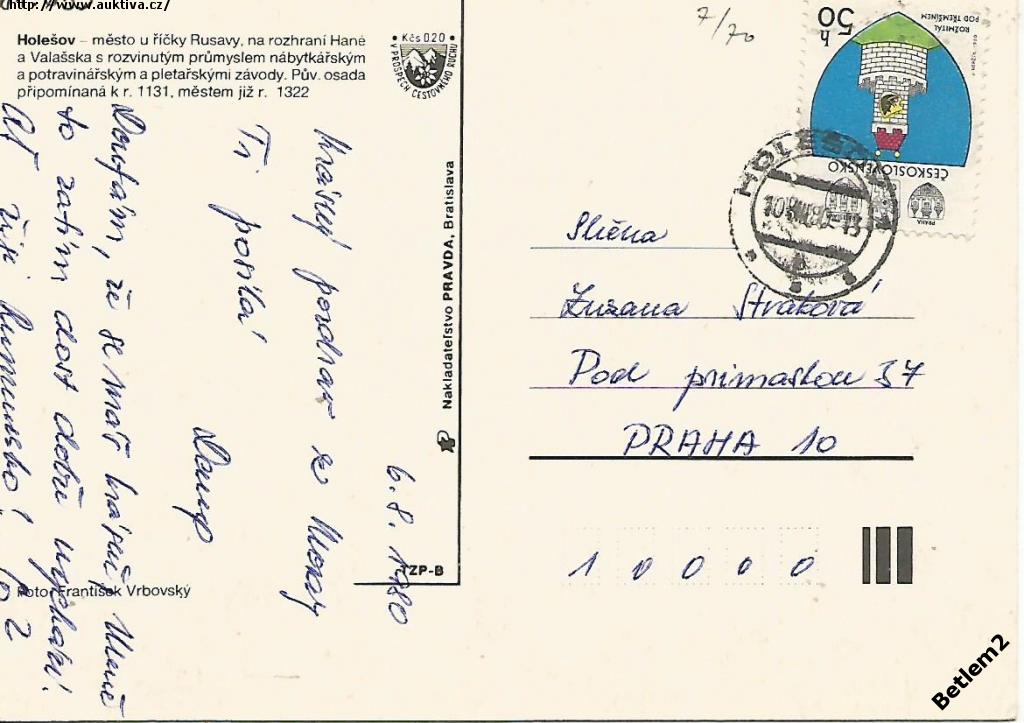 http://www.auktiva.cz/
Holešov – město u říčky Rusavy, na rozhraní Hané
a Valašska s rozvinutým průmyslem nábytkářským
a potravinářským a pletařskými závody. Pův. osada
připomínaná k r. 1131, městem již r. 1322
Kčs 0,20
V PROSPĚCH CESTOVNÍHO RUCHU
7/70
50 h
ROŽMITÁL
POD TŘEMŠÍNEM
ČESKOSLOVENSKO
PRAHA
HOLEŠOV
6. 8. 1980
Krásný pozdrav z Moravy
Ti posílá
Doufám, že se máš krásně. Mně
to zatím dost dobře vychází.
Ať žije Rumunsko!
Nakladatelstvo PRAVDA, Bratislava
TZP-B
Foto František Vrbovský
Slečna
Zuzana Straková
Pod primaskou 37
PRAHA 10
1 0 0 0 0
Betlem2